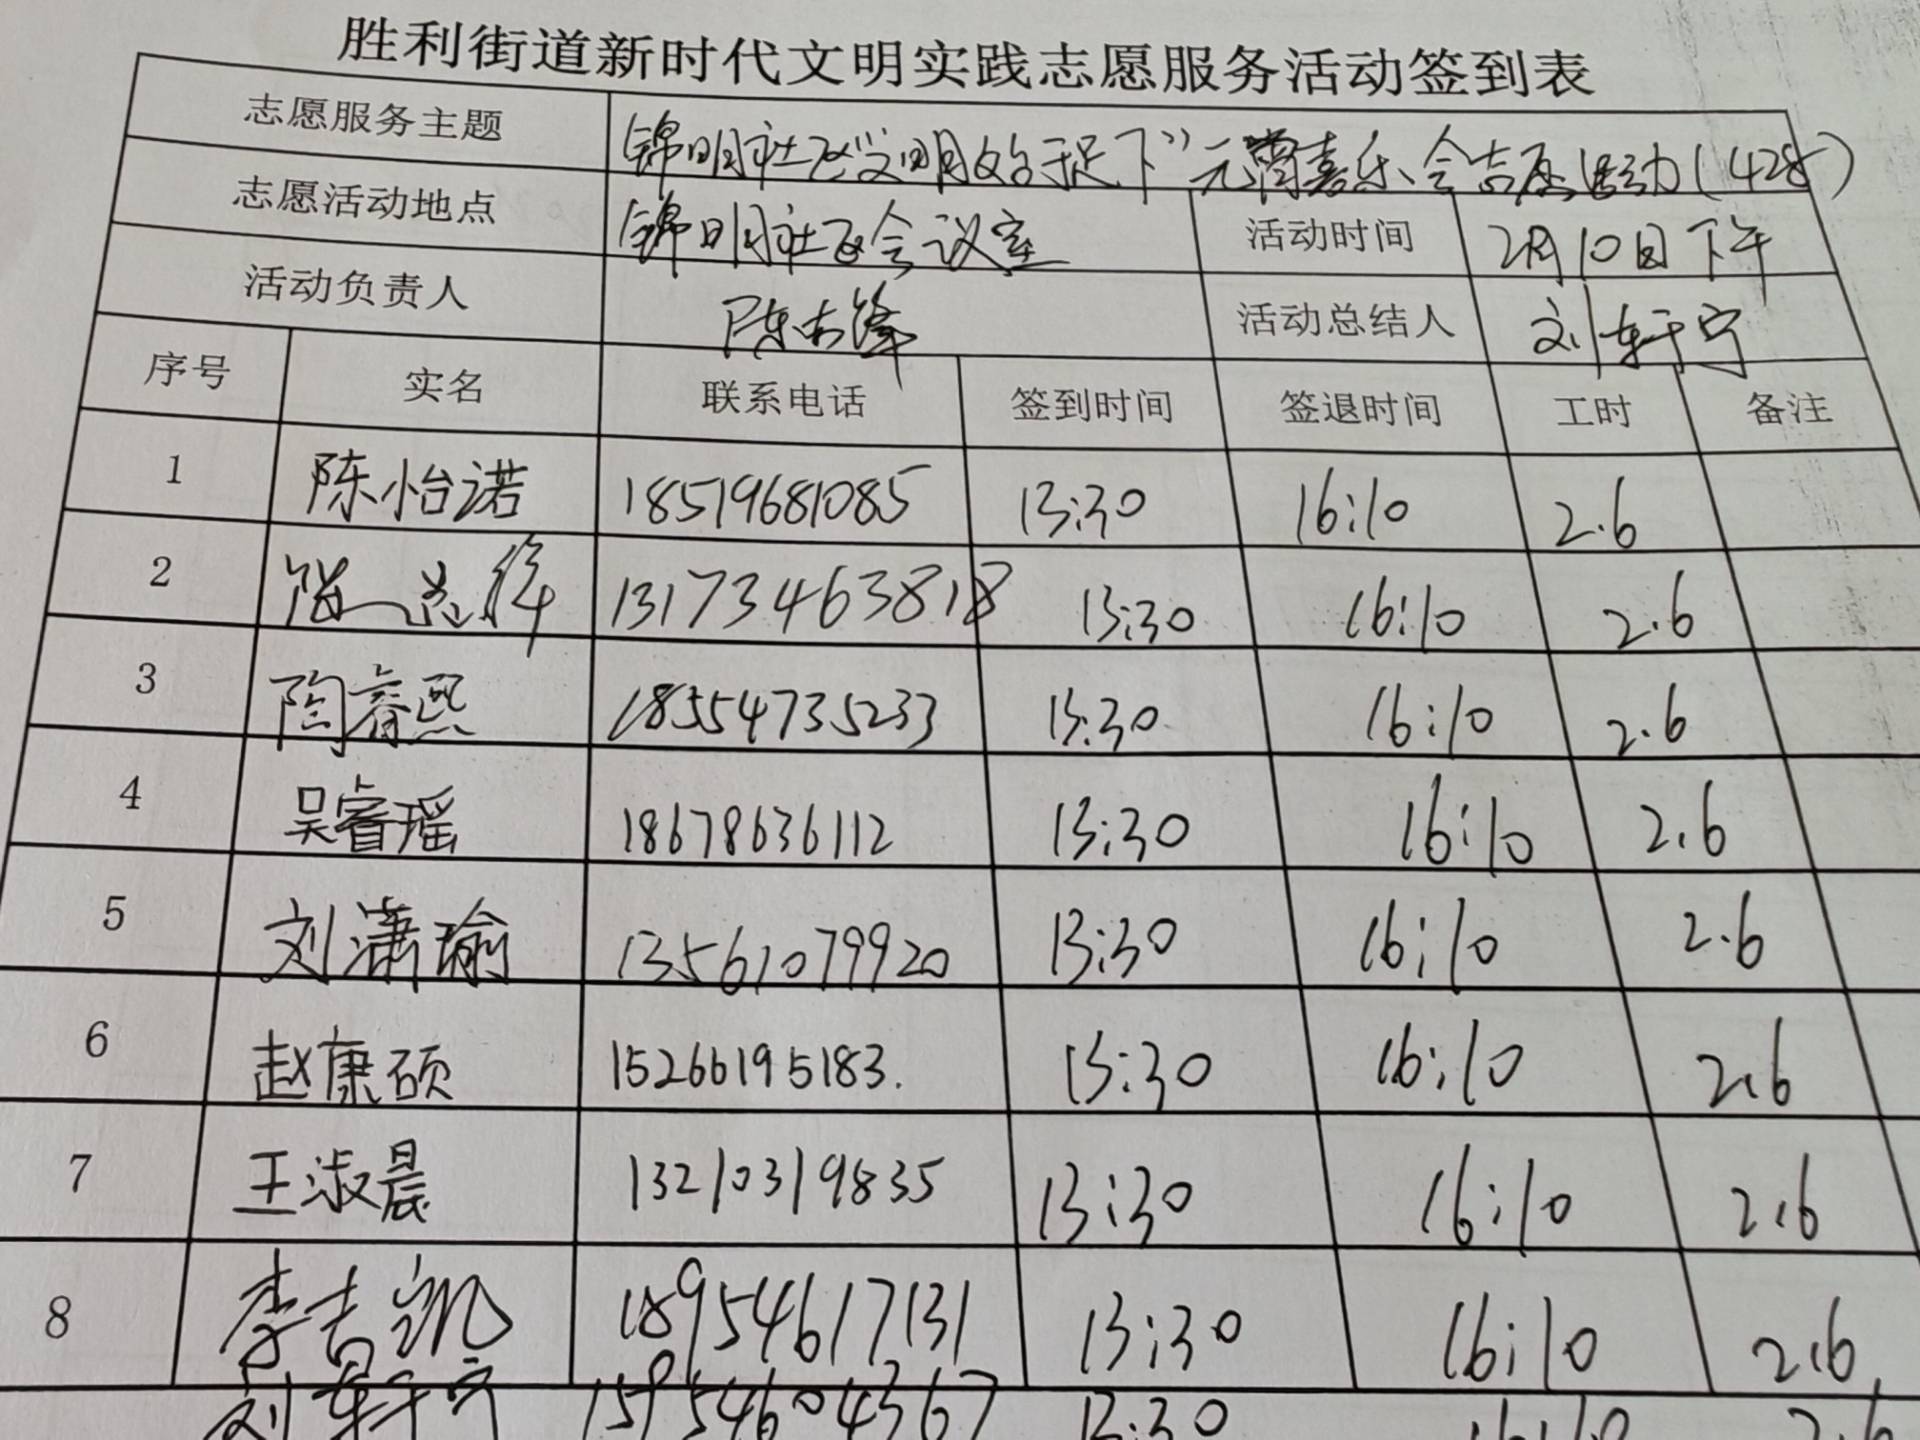 胜利街道新时代文明实践志愿服务活动签到表
志愿服务主题 锦明社区“文明始于足下”元宵喜乐会志愿活动(428)
志愿活动地点 锦明社区会议室 活动时间 2月10日下午
活动负责人 陈志锋 活动总结人 刘轩宁
序号 实名 联系电话 签到时间 签退时间 工时 备注
1 陈怡诺 18519681085 13:30 16:10 2.6
2 13173463818 13:30 16:10 2.6
3 陶睿熙 18554735233 13:30 16:10 2.6
4 吴睿瑶 18678636112 13:30 16:10 2.6
5 刘潇瑜 13561079920 13:30 16:10 2.6
6 赵康硕 15266195183. 13:30 16:10 2.6
7 王淑晨 13210319835 13:30 16:10 2.6
8 李吉凯 18954617131 13:30 16:10 2.6
刘轩宁 15954604367 13:30 16:10 2.6